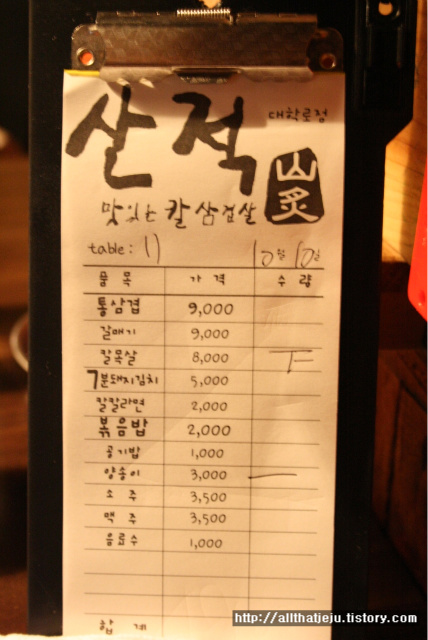 산적
대학로점
맛있는 칼삼겹살
山炙
table: 11 10월 10일
품목 가격 수량
통삼겹 9,000
갈매기 9,000
칼목살 8,000 丅
7분돼지김치 5,000
칼칼라면 2,000
볶음밥 2,000
공기밥 1,000
양송이 3,000 一
소주 3,500
맥주 3,500
음료수 1,000
합계
http://allthatjeju.tistory.com